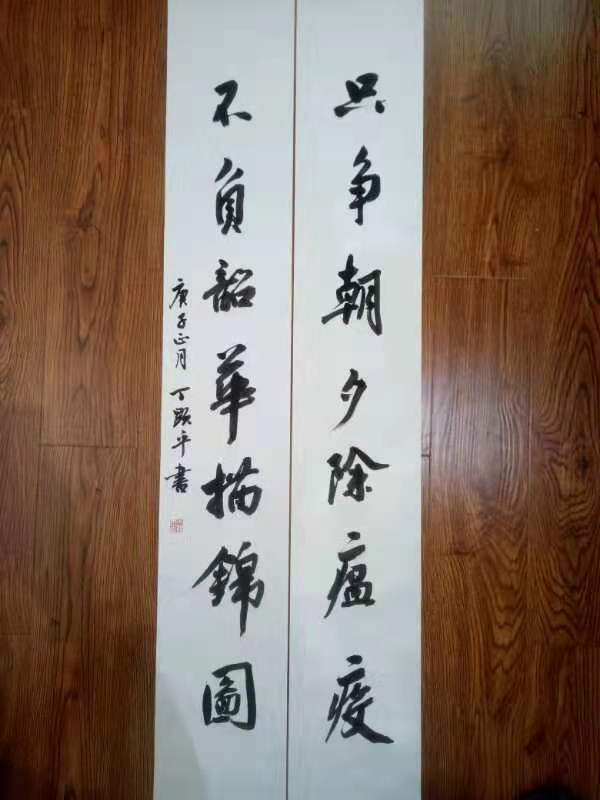 只争朝夕除瘟疫
不負韶華描錦圖
庚子正月 丁顯平書